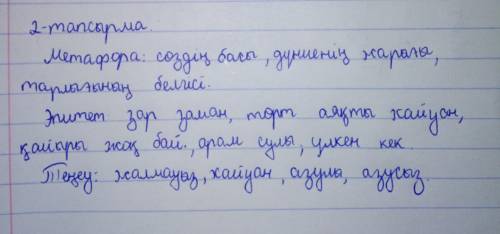 2-тапсырма.
Метафора: сөздің басы, дүниенің жарағы,
тарлығының белгісі.
Эпитет зар заман, төрт аяқты хайуан,
қайыры жоқ бай., арам сулы, үлкен кек.
Теңеу: жалмауыз, хайуан, азулы, азусыз.